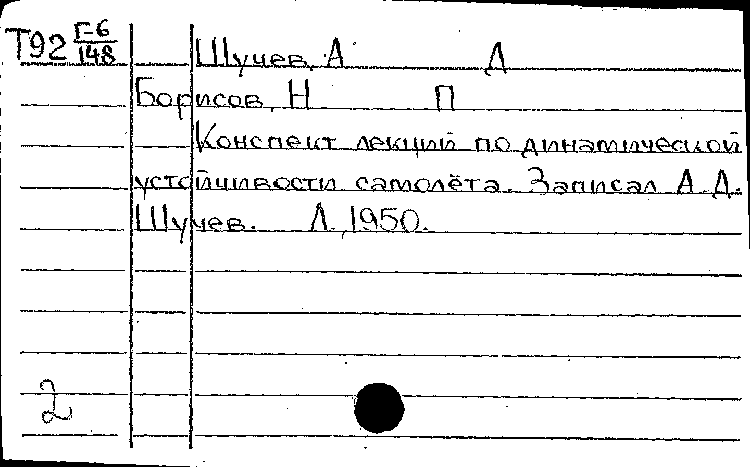 Т92 Г-6/148 Шучев, А Д
Борисов, Н П
Конспект лекций по динамической
устойчивости самолёта. Записал А.Д.
Шучев. Л., 1950.
2